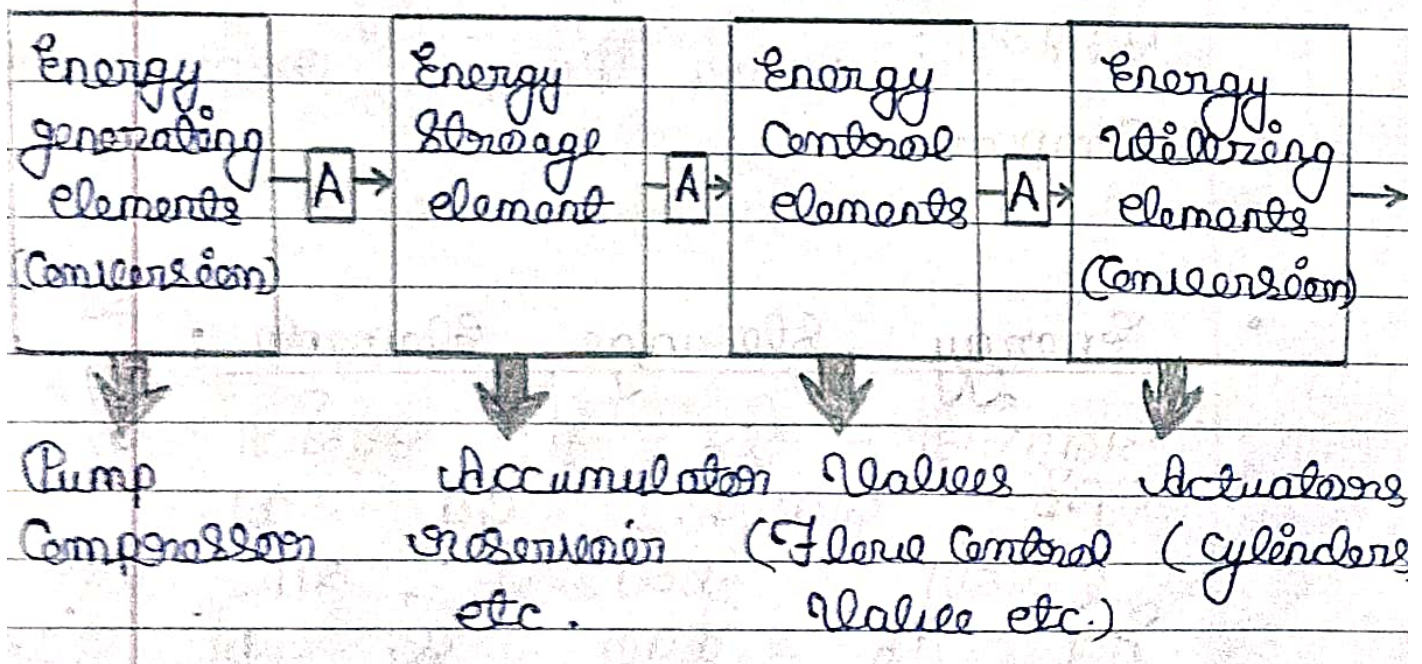 Energy
generating
elements
(Conversion)
A
Energy
Storage
element
A
Energy
Control
elements
A
Energy
Utilizing
elements
(Conversion)
Pump
Compressor
Accumulator
reservoir
etc.
Valves
(Flow Control
Valve etc.)
Actuators
(Cylinders